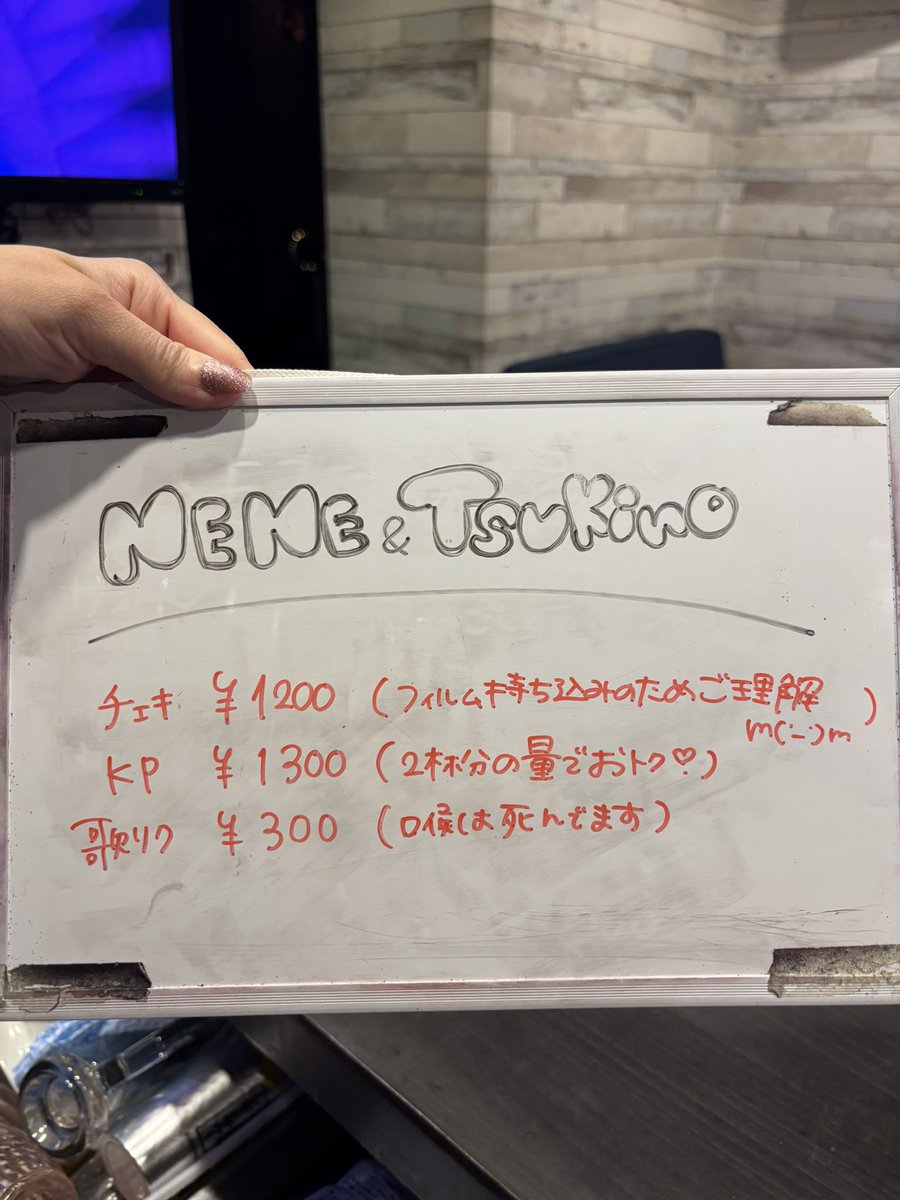 NENE & TsuKino
チェキ ¥1200 (フィルム持ち込みのためご理解 m(--)m)
KP ¥1300 (2杯分の量でおトク♡)
歌リク ¥300 (口侯はお死んでます)